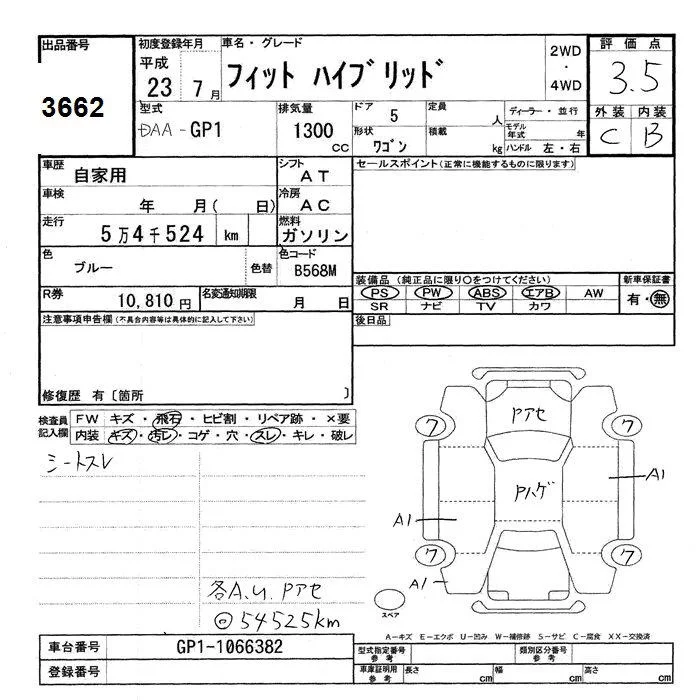 出品番号
3662
初度登録年月
平成
23 7月
車名・グレード
フィット ハイブリッド
2WD
・
4WD
評価点
3.5
外装 内装
C B
型式
DAA-GP1
排気量
1300
cc
ドア 5
形状 ワゴン
定員 人
積載 kg
ディーラー・並行
モデル年式 年
ハンドル 左・右
車歴 自家用
シフト AT
セールスポイント(正常に機能するものに限ります)
車検 年 月( 日)
冷房 AC
走行 5万4千524 km
燃料 ガソリン
色 ブルー 色替
色コード B568M
装備品 (純正品に限り○をつけてください)
新車保証書
PS PW ABS エアB AW
有・無
SR ナビ TV カワ
R券 10,810円
名変通知期限 月 日
後日品
注意事項申告欄(不具合内容等は具体的に記入して下さい)
修復歴 有〔箇所 〕
検査員記入欄
FW キズ・飛石・ヒビ割・リペア跡・×要
内装 キズ・汚レ・コゲ・穴・スレ・キレ・破レ
シートスレ
各A.U.Pアセ
◎54525km
Pアセ
ワ ワ
Pハゲ
A1
A1
ワ ワ
A1
スペア
A-キズ E-エクボ U-凹み W-補修跡 S-サビ C-腐食 XX-交換済
車台番号 GP1-1066382
登録番号
型式指定番号 参考
類別区分番号 参考
車庫証明用 参考
長さ cm 幅 cm 高さ cm